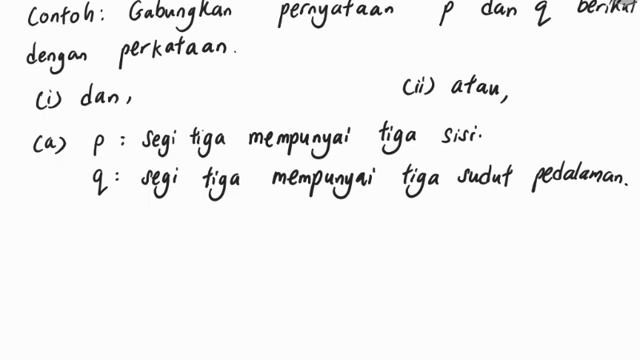 Contoh: Gabungkan pernyataan p dan q berikut
dengan perkataan.
(i) dan, (ii) atau,
(a) p : segi tiga mempunyai tiga sisi.
q : segi tiga mempunyai tiga sudut pedalaman.